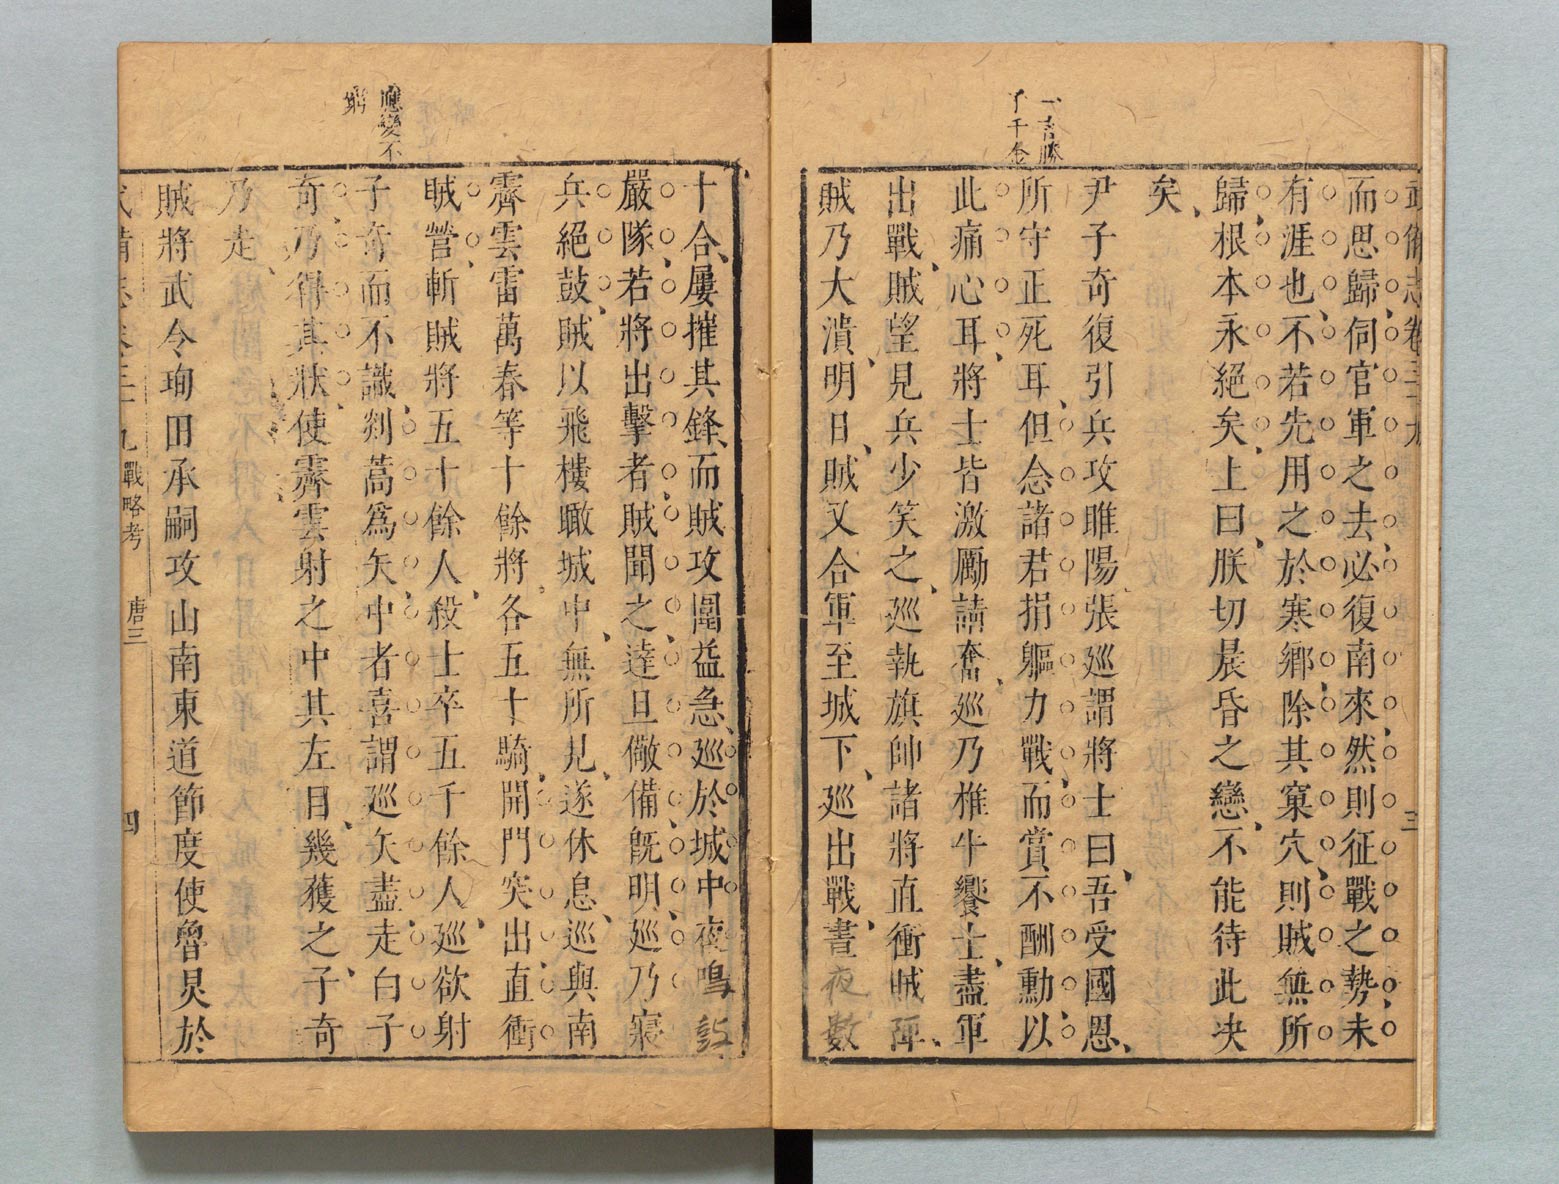 武備志卷三十九
三
一言勝
了千金
而思歸伺官軍之去必復南來然則征戰之勢未
有涯也不若先用之於寒鄉除其窠穴則賊無所
歸根本永絕矣上曰朕切晨昏之戀不能待此决
矣
尹子奇復引兵攻睢陽張廵謂將士曰吾受國恩
所守正死耳但念諸君捐軀力戰而賞不酬勳以
此痛心耳將士皆激勵請奮廵乃椎牛饗士盡軍
出戰賊望見兵少笑之廵執旗帥諸將直衝賊陣
賊乃大潰明日賊又合軍至城下廵出戰晝夜數
十合屢摧其鋒而賊攻圍益急廵於城中夜鳴鼓
嚴隊若將出擊者賊聞之達旦儆備旣明廵乃寢
兵絕鼓賊以飛樓瞰城中無所見遂休息廵與南
霽雲雷萬春等十餘將各五十騎開門突出直衝
賊營斬賊將五十餘人殺士卒五千餘人廵欲射
子奇而不識剡蒿爲矢中者喜謂廵矢盡走白子
奇乃得其狀使霽雲射之中其左目幾獲之子奇
乃走
賊將武令珣田承嗣攻山南東道節度使魯炅於
應變不
窮
武備志卷三十九 戰略考 唐三
四